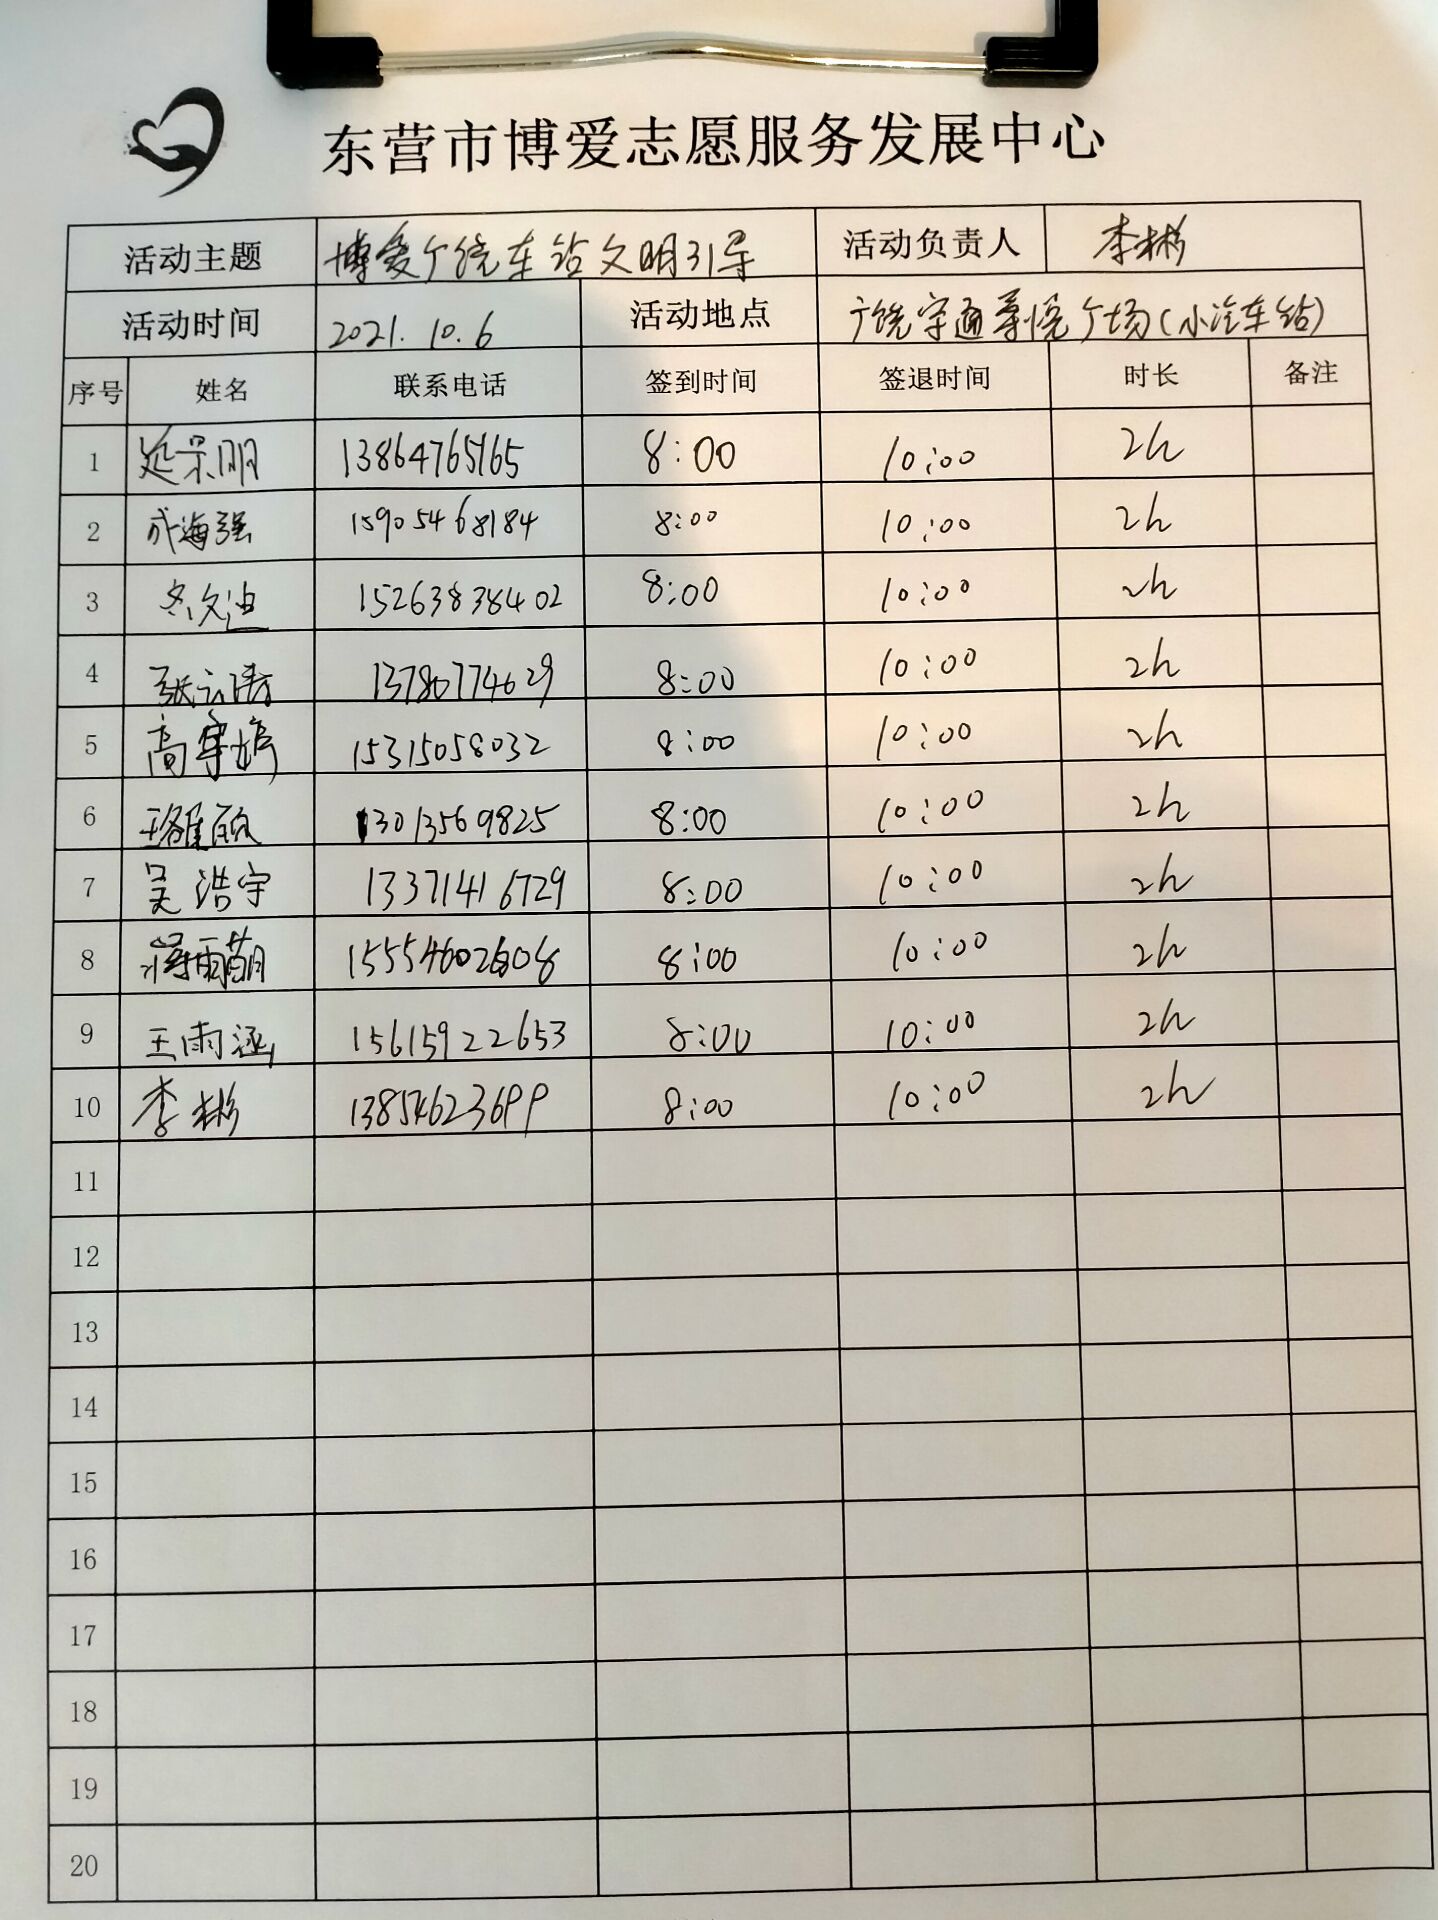 东营市博爱志愿服务发展中心
活动主题 博爱广饶车站文明引导 活动负责人 李彬
活动时间 2021.10.6 活动地点 广饶宇通尊悦广场(小汽车站)
序号 姓名 联系电话 签到时间 签退时间 时长 备注
1 13864765165 8:00 10:00 2h
2 成海强 15905468184 8:00 10:00 2h
3 15263838402 8:00 10:00 2h
4 13780774629 8:00 10:00 2h
5 15315058032 8:00 10:00 2h
6 13013569825 8:00 10:00 2h
7 吴浩宇 13371416729 8:00 10:00 2h
8 蒋雨萌 8:00 10:00 2h
9 王雨涵 15615922653 8:00 10:00 2h
10 李彬 13854623699 8:00 10:00 2h
11
12
13
14
15
16
17
18
19
20